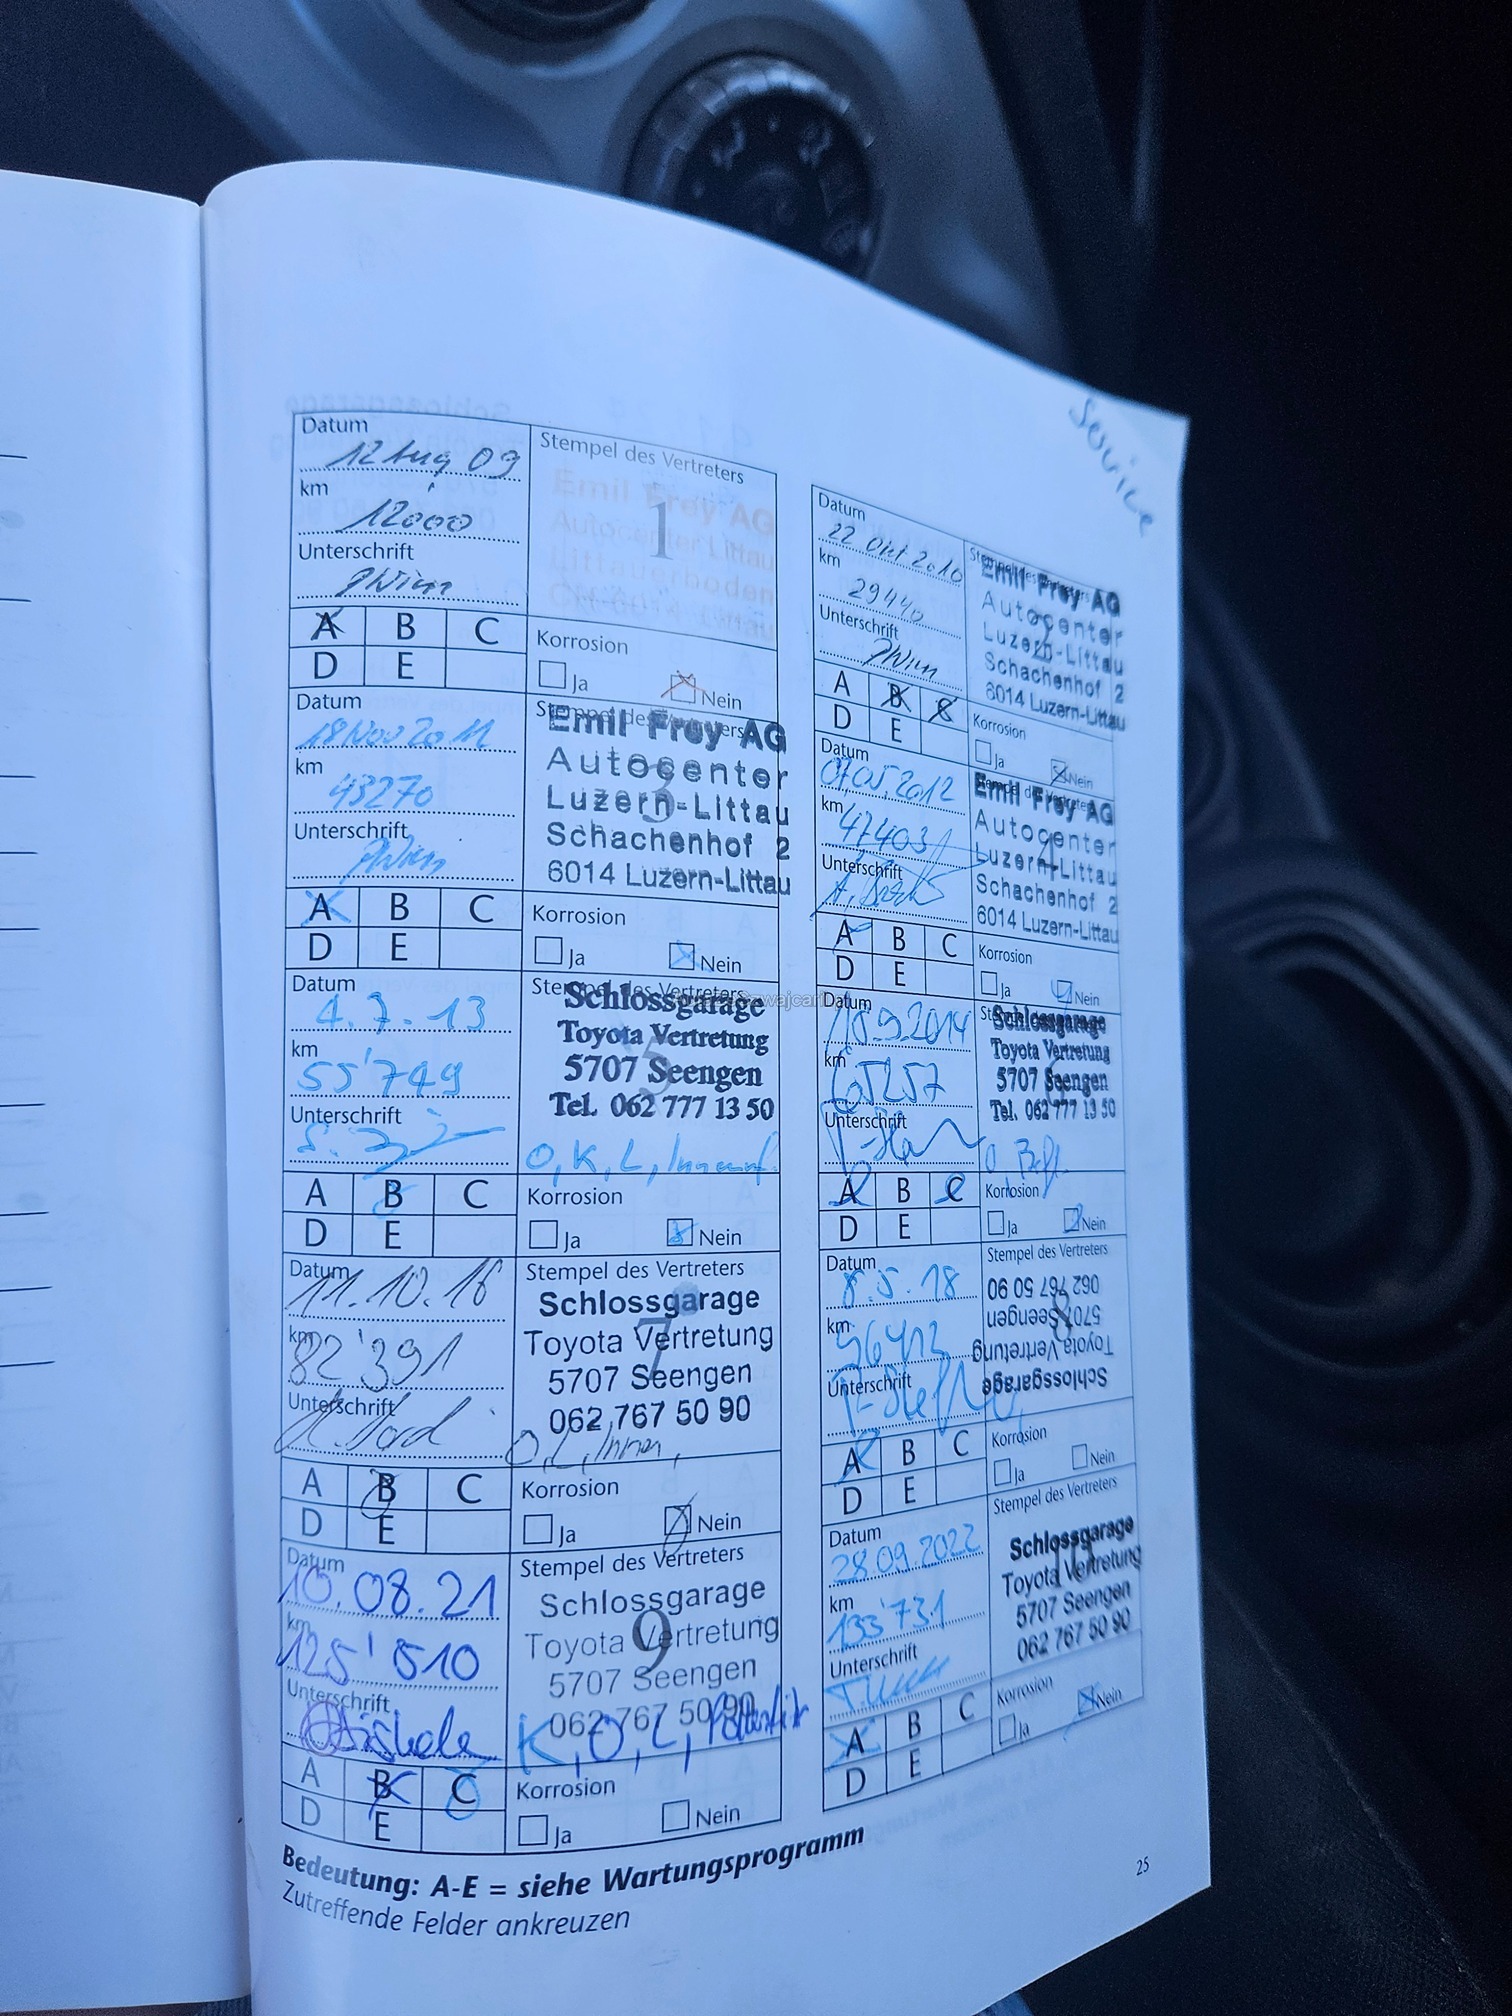 Service
Datum
12 Aug 09
km
12000
Unterschrift
Stempel des Vertreters
1
Emil Frey AG
Autocenter Littau
Littauerboden
CH-6014 Littau
A B C
D E
Korrosion
Ja Nein
Datum
22 Okt 2010
km
29440
Unterschrift
Emil Frey AG
Autocenter
Luzern-Littau
Schachenhof 2
6014 Luzern-Littau
A B C
D E
Korrosion
Ja Nein
Datum
18 Nov 2011
km
43270
Unterschrift
Emil Frey AG
Autocenter
Luzern-Littau
Schachenhof 2
6014 Luzern-Littau
A B C
D E
Korrosion
Ja Nein
Datum
07.05.2012
km
47403
Unterschrift
Emil Frey AG
Autocenter
Luzern-Littau
Schachenhof 2
6014 Luzern-Littau
A B C
D E
Korrosion
Ja Nein
Datum
4.7.13
km
55'749
Unterschrift
Stempel des Vertreters
Schlossgarage
Toyota Vertretung
5707 Seengen
Tel. 062 777 13 50
O, K, L,
A B C
D E
Korrosion
Ja Nein
Datum
10.9.2014
km
65257
Unterschrift
Schlossgarage
Toyota Vertretung
5707 Seengen
Tel. 062 777 13 50
A B C
D E
Korrosion
Ja Nein
Datum
11.10.16
km
82'391
Unterschrift
Stempel des Vertreters
7
Schlossgarage
Toyota Vertretung
5707 Seengen
062 767 50 90
O, L, Innen,
A B C
D E
Korrosion
Ja Nein
Datum
8.5.18
km
96413
Unterschrift
Stempel des Vertreters
8
Schlossgarage
Toyota Vertretung
5707 Seengen
062 767 50 90
A B C
D E
Korrosion
Ja Nein
Datum
10.08.21
km
125'510
Unterschrift
Stempel des Vertreters
9
Schlossgarage
Toyota Vertretung
5707 Seengen
062 767 50 90
K, O, L,
A B C
D E
Korrosion
Ja Nein
Datum
28.09.2022
km
133'731
Unterschrift
Stempel des Vertreters
Schlossgarage
Toyota Vertretung
5707 Seengen
062 767 50 90
A B C
D E
Korrosion
Ja Nein
Bedeutung: A-E = siehe Wartungsprogramm
Zutreffende Felder ankreuzen
25